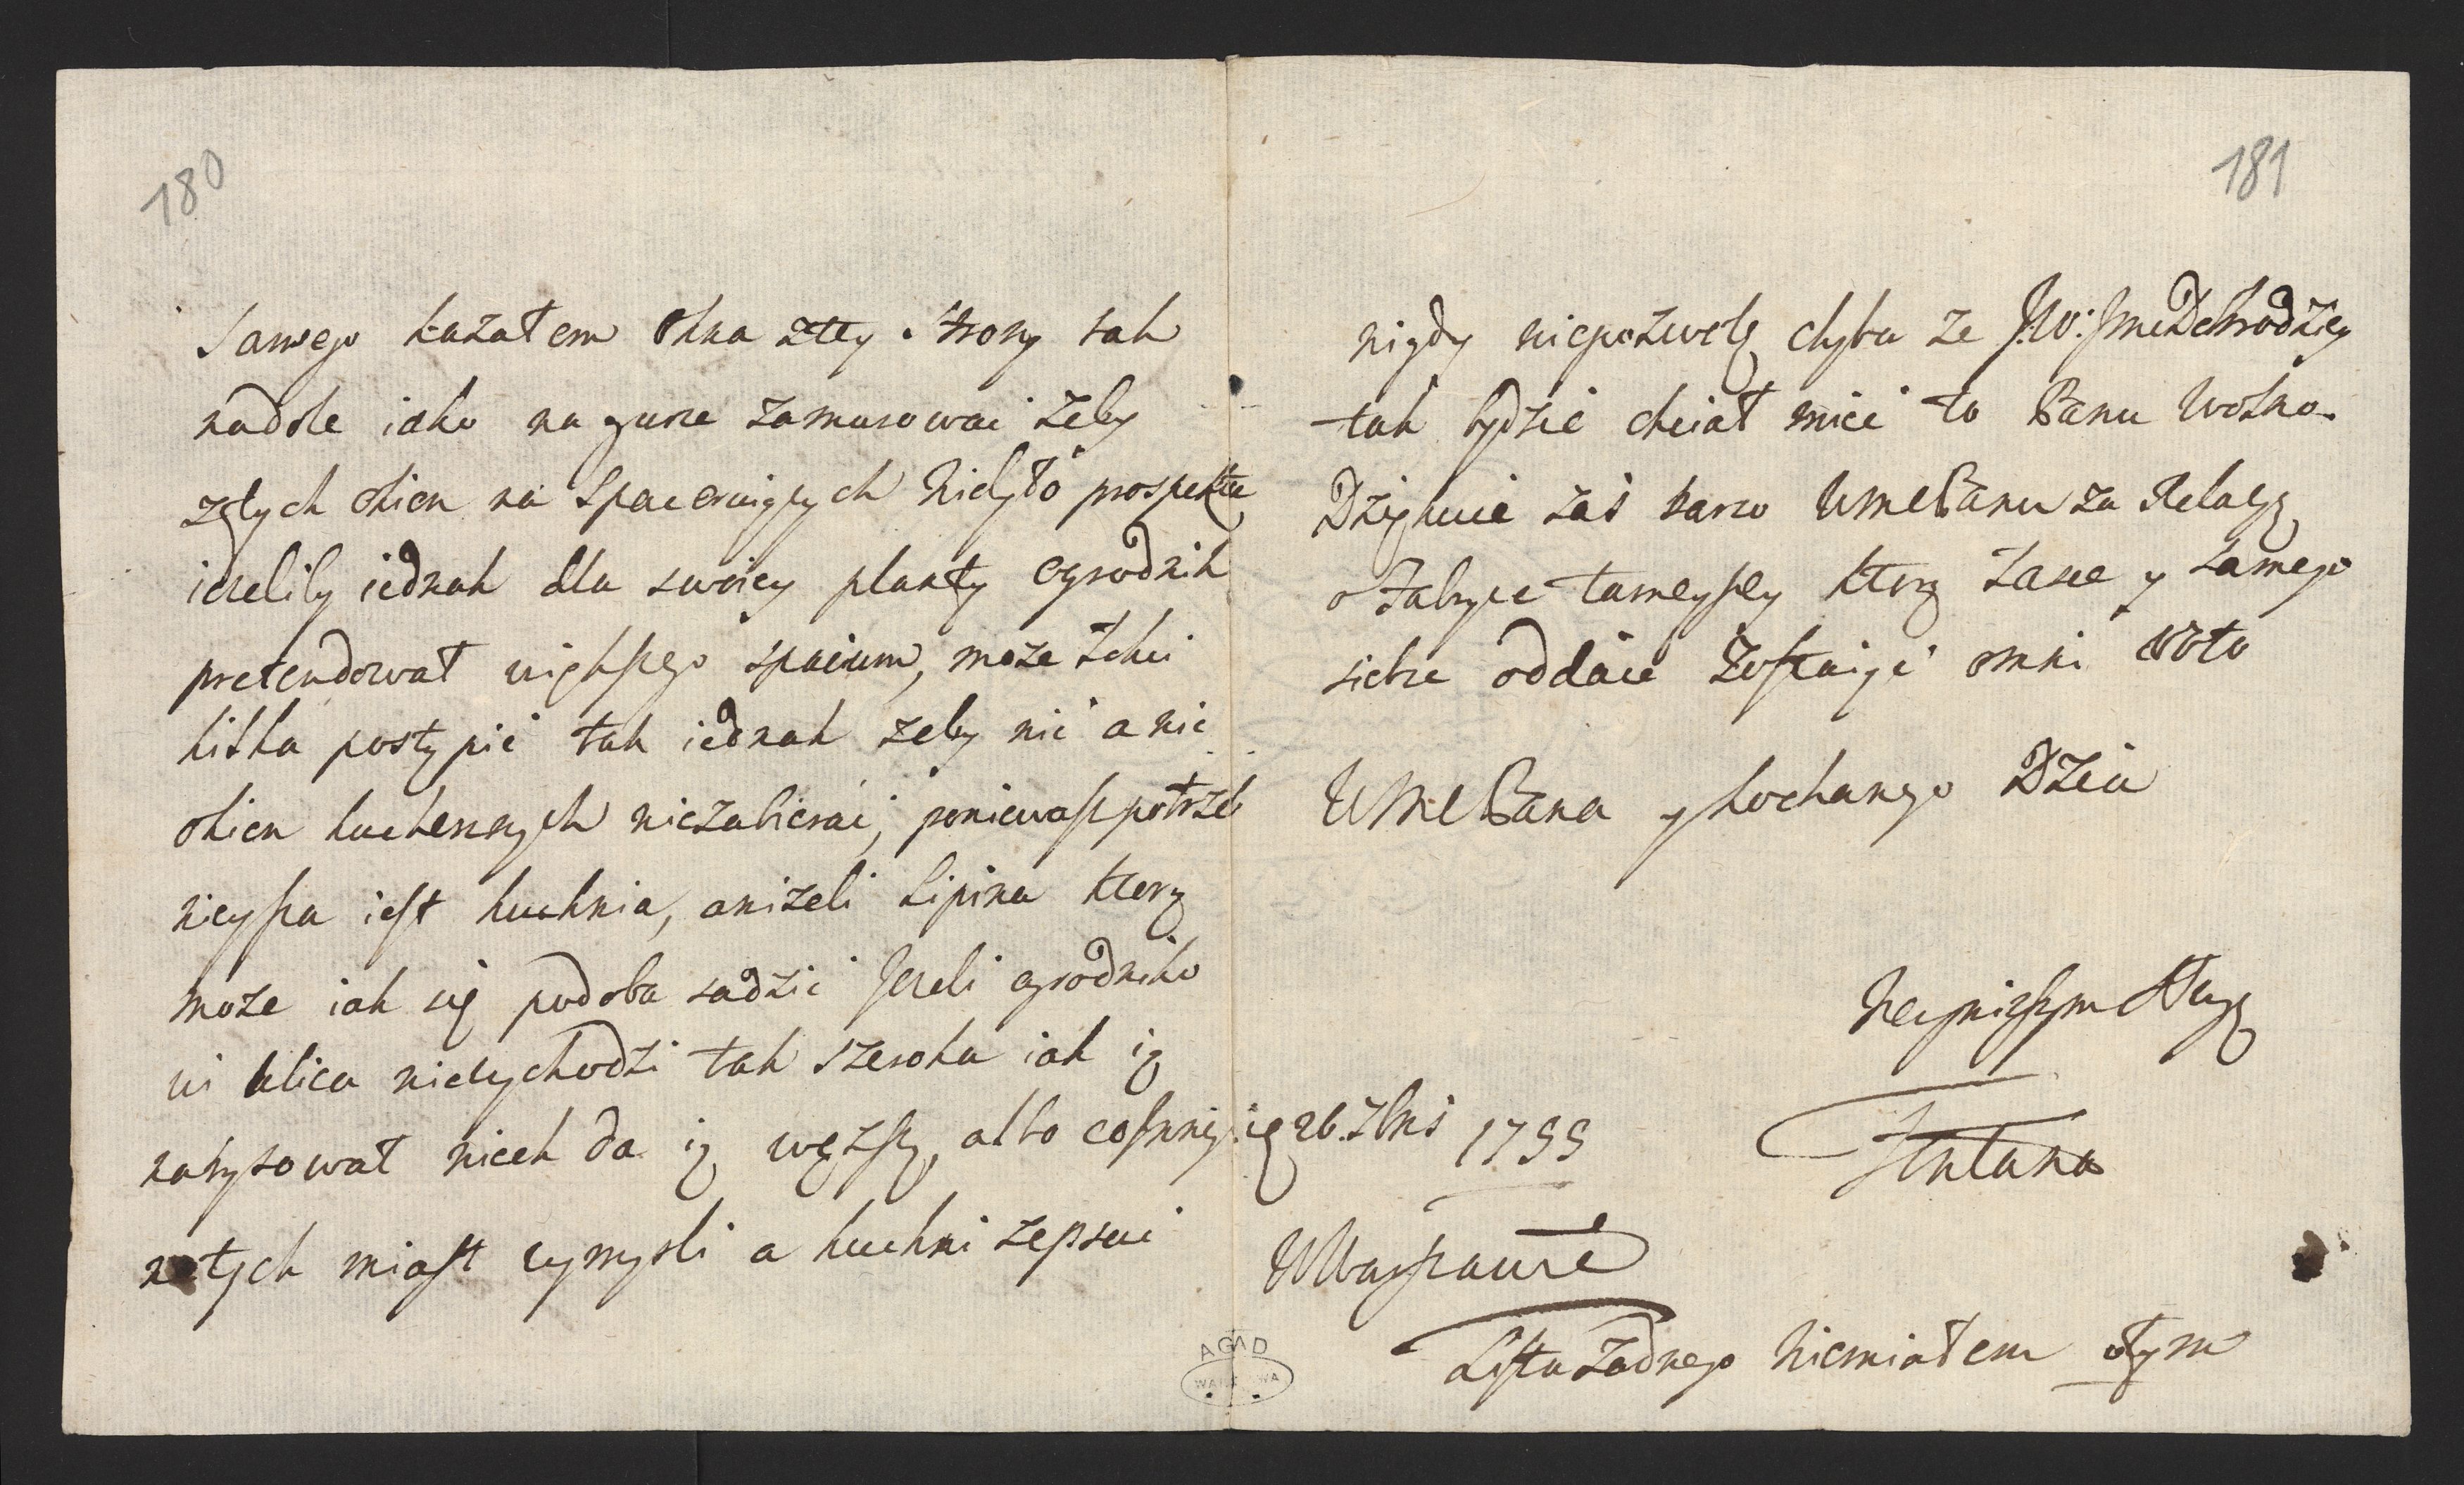 180
samego kazałem okna ztey strony tak
nadole iako na gurze zamurowac zeby
ztych okien na spaceruiących niebyło prospektu
iezeliby iednak dla swoiey planty ogrodnik
pretendował większego spacium, moze łokci
kilka postąpić tak iednak zeby nic a nic
okien kuchennych niezabierać, poniewasz potrzeb
nieysza iest kuchnia, anizeli Lipina ktorą
moze iak się podoba sadzić Jezeli ogrodniko
wi ulica niewychodzi tak szeroka iak ią
narysował niech da ią węzszą, albo co innego
natych miast wymysli a kuchni zepsuć
181
nigdy niepozwolę chyba ze J.W: Jmć Dobrodziey
tak będzie chciał mieć to Panu Wolno.
Dziękuie zaś barzo WmćPanu za Relacyą
o Fabryce tameyszey ktorą Łasce y samego
siebie oddaie Zostaiąc omni Voto
WMćPana y kochanego Dzieia
Nayniższym Sługą
Fontana
26. Xbris 1755
WWarszawie
Listu Zadnego Niemiałem otym
AGAD
WARSZAWA